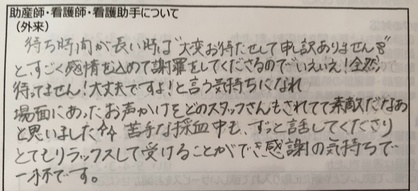 助産師・看護師・看護助手について
（外来）
待ち時間が長い時は"大変お待たせして申し訳ありません"
と、すごく感情を込めて謝罪をしてくださるので"いえいえ！全然
待ってません！大丈夫ですよ！と言う気持ちになれ
場面にあったお声かけをどのスタッフさんもされてて素敵だなあ
と思いました 苦手な採血中も、ずっと話してくださり
とてもリラックスして受けることができ感謝の気持ちで
一杯です。